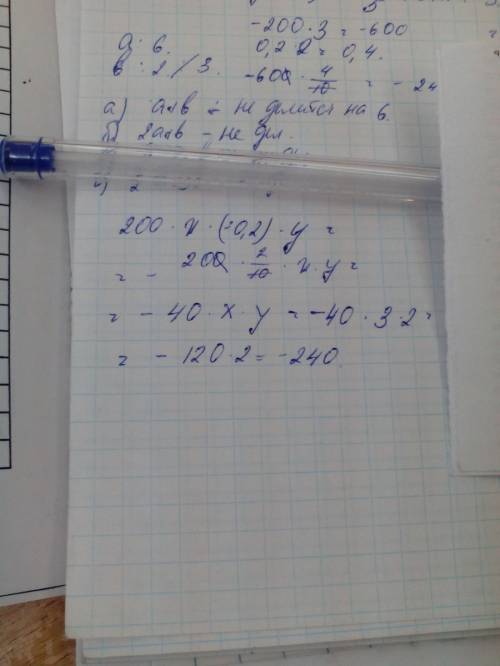 -200 · 3 = -600
a : 6.
0,2 · 2 = 0,4.
в : 2 / 3.
-600 · 4/10 = - 24
а) а+в - не делится на 6.
2а+в - не дел.
200 · x · (-0,2) · y =
= - 200 · 2/10 · x · y =
= - 40 · x · y = -40 · 3 · 2 =
= - 120 · 2 = -240.